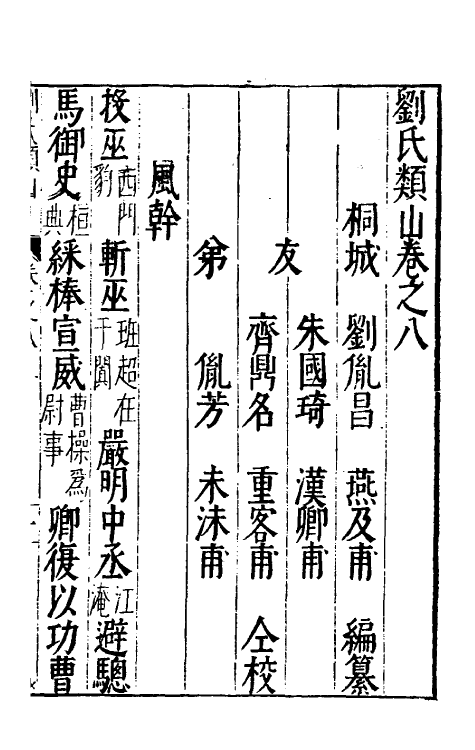 劉氏類山卷之八
桐城 劉胤昌 燕及甫 編纂
朱國琦 漢卿甫
友 齊鼎名 重客甫 仝校
弟 胤芳 未沬甫
風幹
投巫西門豹 斬巫班超在于闐 嚴明中丞江淹 避驄
馬御史桓典 綵棒宣威曹操爲尉事 卿復以功曹